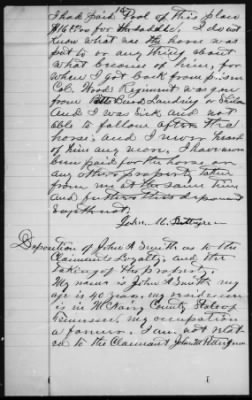 I had paid Pool of this place
$16.00 for the saddle. I do not
know what the horse was
put to or any thing about
what became of him; for
when I got back from prison
Col. Woods Regiment was gone
from Burd Landing or Selma
And I was sick and not
able to follow after the
horse; and I never heard
of him any more. I have never
been paid for the horse or
any other property taken
from me at the same time
and further this deponent
sayeth not.
John M. Pettigrew
Deposition of John A Smith as to the
Claimants Loyalty, and the
taking of the property.
My name is John A Smith my
age is 40 years, my residence
is in McNairy County State of
Tennessee, my occupation
a farmer. I am not relat
ed to the Claimant John M Pettigrew